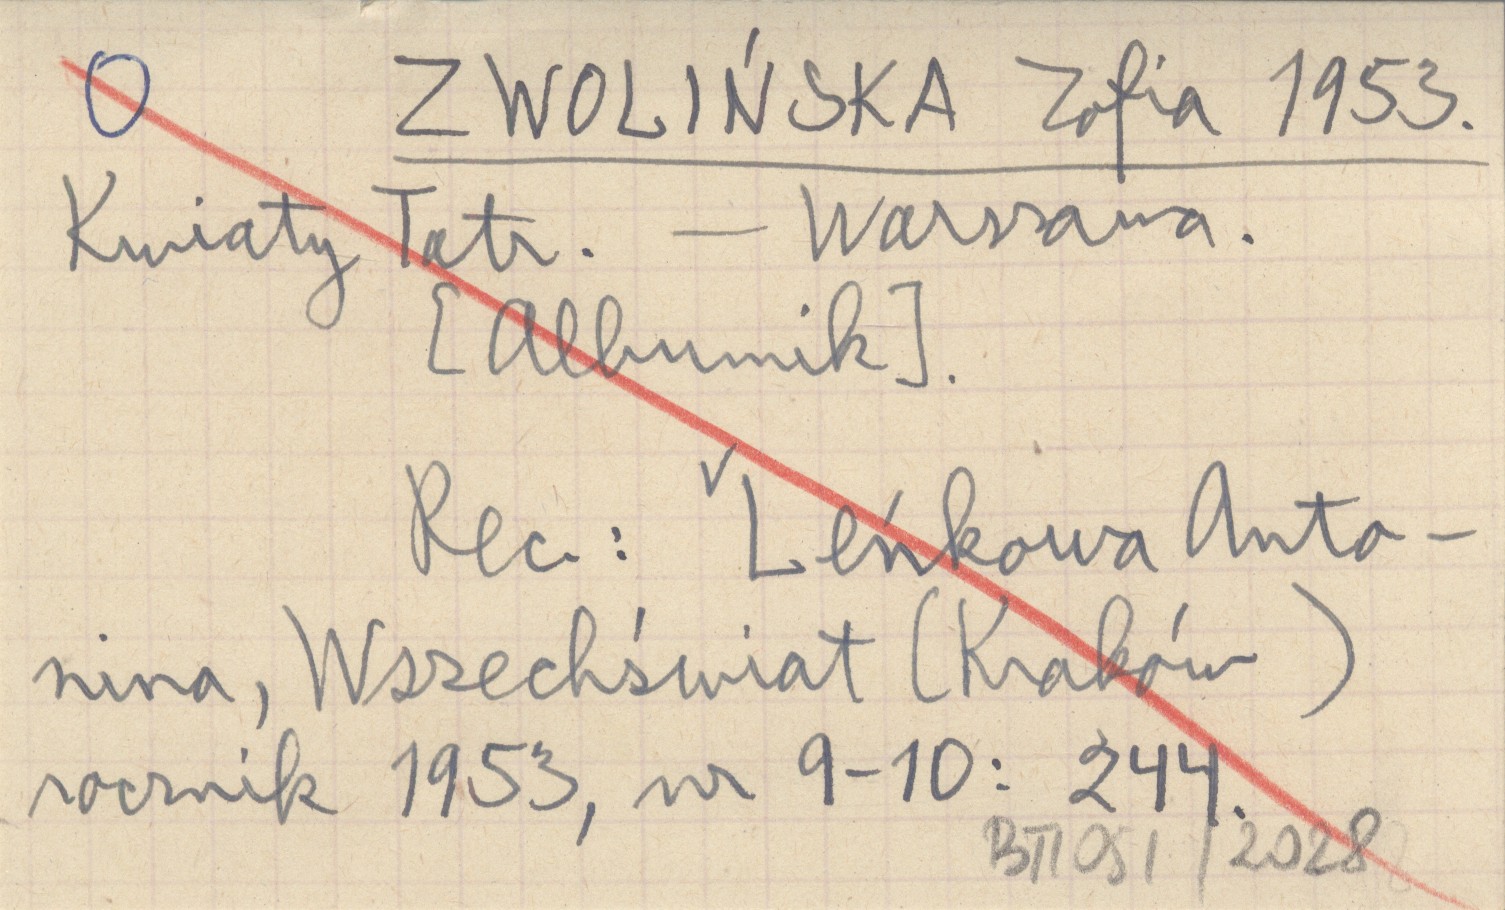 O ZWOLIŃSKA Zofia 1953.
Kwiaty Tatr. — Warszawa.
[Albumik].
Rec.: Leńkowa Anto-
nina, Wszechświat (Kraków)
rocznik 1953, nr 9-10: 244.
/2028